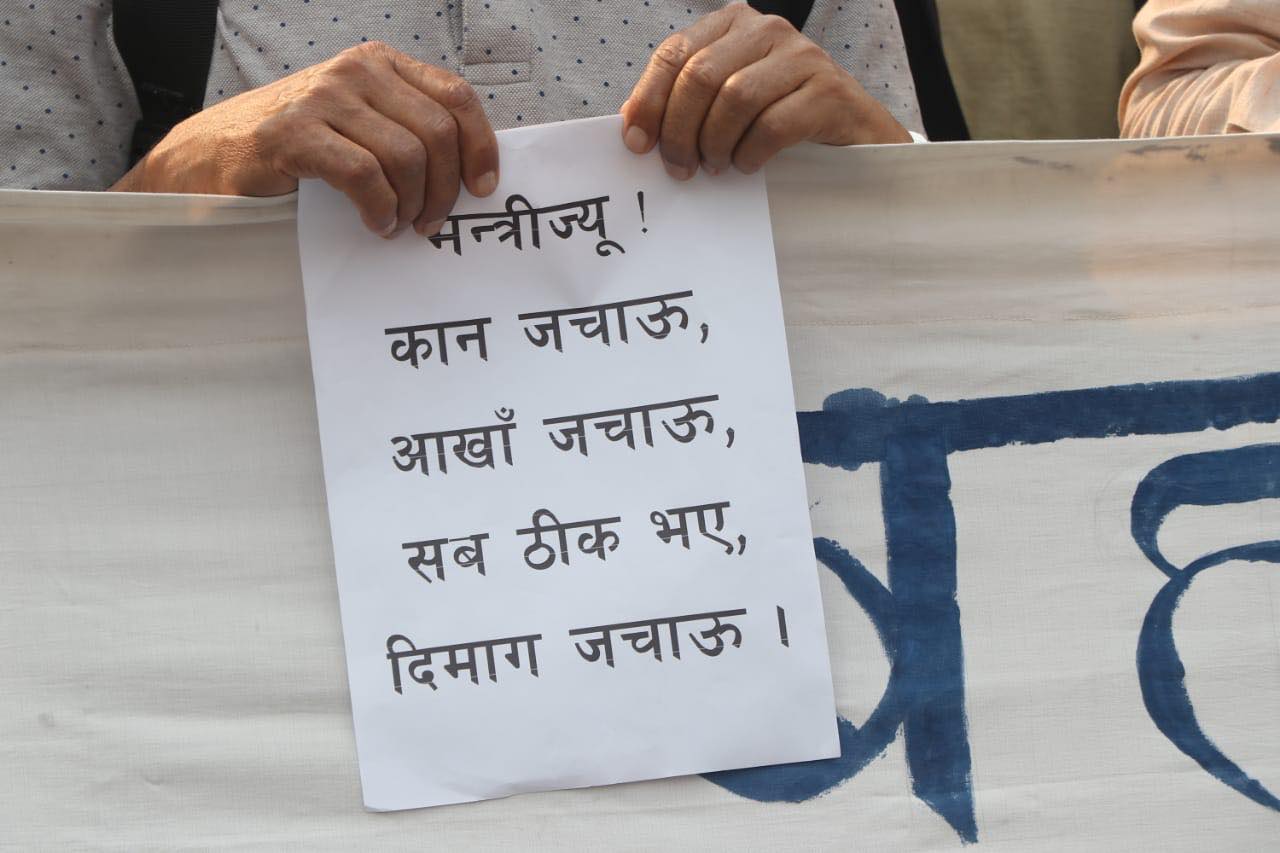 मन्त्रीज्यू !
कान जचाऊ,
आखाँ जचाऊ,
सब ठीक भए,
दिमाग जचाऊ ।